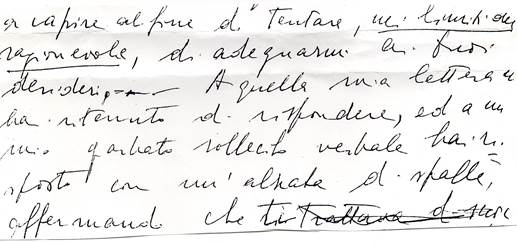 capire al fine di tentare, nei limiti del
ragionevole, di adeguarmi ai tuoi
desideri. A quella mia lettera n
hai ritenuto di rispondere, ed a un
mio garbato sollecito verbale hai ri
sposto con un'alzata di spalle,
affermando che